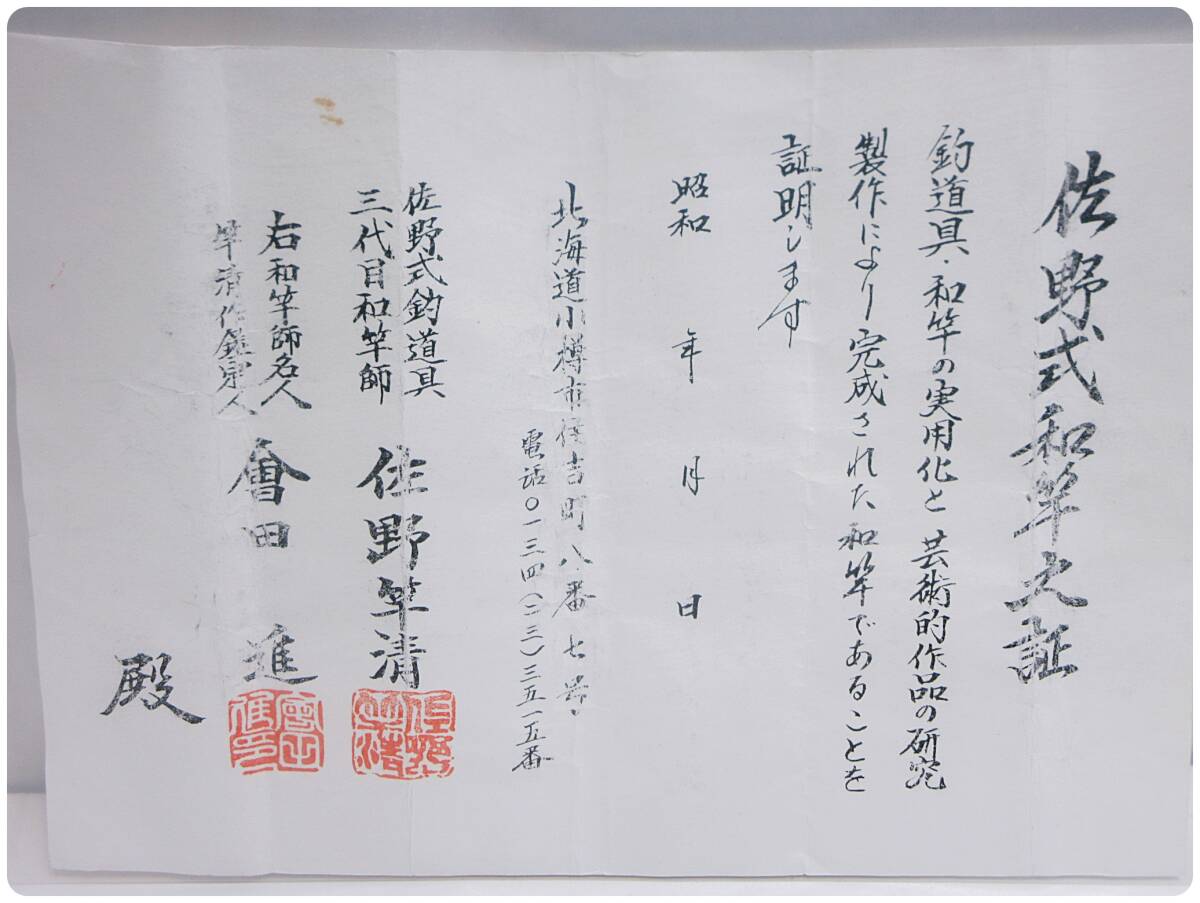 佐野式和竿之証
釣道具・和竿の実用化と芸術的作品の研究
製作により完成された和竿であることを
証明します
昭和 年 月 日
北海道小樽市住吉町八番七号
電話〇一三四(二三)三五一五番
佐野式釣道具
三代目和竿師 佐野竿清
右和竿師名人
竿清作鑑定人 會田 進
殿